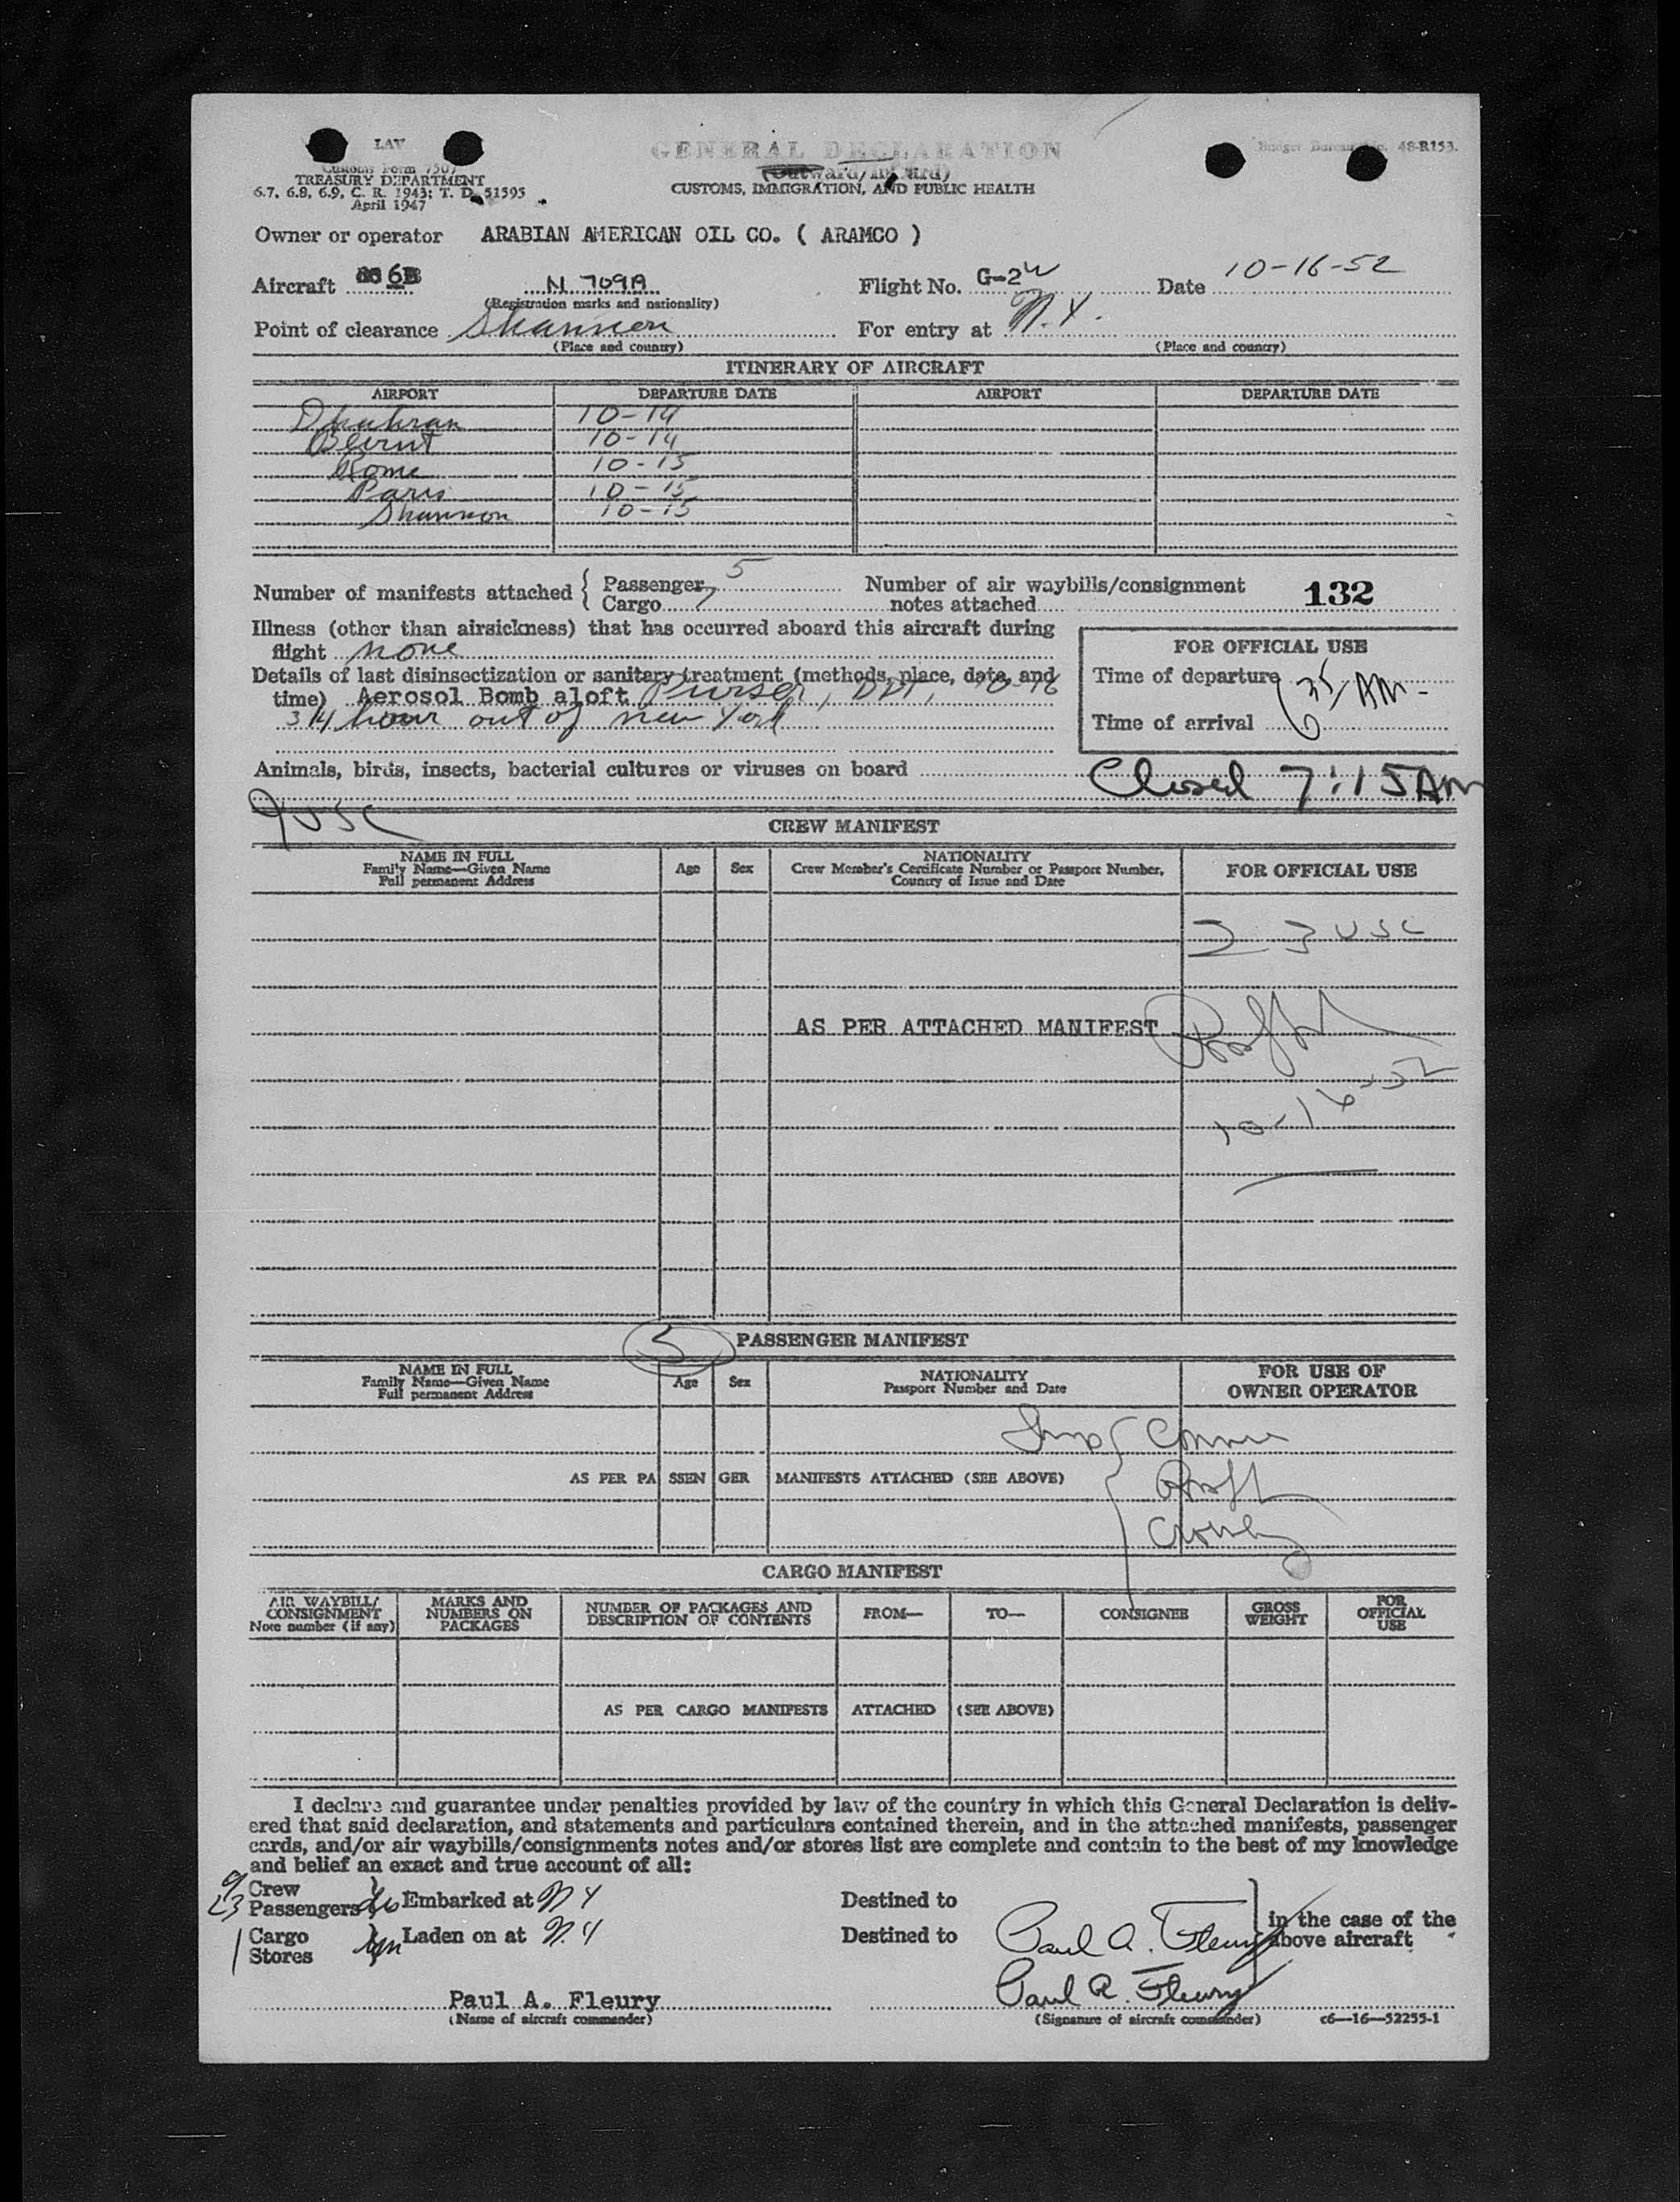 LAV
Customs Form 7507
TREASURY DEPARTMENT
6.7, 6.8, 6.9, C. R. 1943; T. D. 51595
April 1947
GENERAL DECLARATION
(Outward/Inward)
CUSTOMS, IMMIGRATION, AND PUBLIC HEALTH
Budget Bureau No. 48-R153.
Owner or operator ARABIAN AMERICAN OIL CO. ( ARAMCO )
Aircraft 6B N 709A Flight No. G-2W Date 10-16-52
(Registration marks and nationality)
Point of clearance Shannon For entry at N.Y.
(Place and country) (Place and country)
ITINERARY OF AIRCRAFT
AIRPORT DEPARTURE DATE AIRPORT DEPARTURE DATE
Dhahran 10-14
Beirut 10-14
Rome 10-15
Paris 10-15
Shannon 10-15
Number of manifests attached { Passenger 5 Number of air waybills/consignment 132
Cargo notes attached
Illness (other than airsickness) that has occurred aboard this aircraft during
flight none
Details of last disinsectization or sanitary treatment (methods, place, date, and
time) Aerosol Bomb aloft Purser, DDT, 10-16
3/4 hour out of New York
FOR OFFICIAL USE
Time of departure
Time of arrival 6 35 AM-
Animals, birds, insects, bacterial cultures or viruses on board
Closed 7:15 AM
9 USC
CREW MANIFEST
NAME IN FULL Age Sex NATIONALITY FOR OFFICIAL USE
Family Name—Given Name Crew Member's Certificate Number or Passport Number,
Full permanent Address Country of Issue and Date
23 USC
AS PER ATTACHED MANIFEST
10-16-52
5 PASSENGER MANIFEST
NAME IN FULL Age Sex NATIONALITY FOR USE OF
Family Name—Given Name Passport Number and Date OWNER OPERATOR
Full permanent Address
AS PER PASSENGER MANIFESTS ATTACHED (SEE ABOVE)
CARGO MANIFEST
AIR WAYBILL/ MARKS AND NUMBER OF PACKAGES AND FROM— TO— CONSIGNEE GROSS FOR
CONSIGNMENT NUMBERS ON DESCRIPTION OF CONTENTS WEIGHT OFFICIAL
Note number (if any) PACKAGES USE
AS PER CARGO MANIFESTS ATTACHED (SEE ABOVE)
I declare and guarantee under penalties provided by law of the country in which this General Declaration is deliv-
ered that said declaration, and statements and particulars contained therein, and in the attached manifests, passenger
cards, and/or air waybills/consignments notes and/or stores list are complete and contain to the best of my knowledge
and belief an exact and true account of all:
9 Crew
23 Passengers Embarked at NY Destined to
1 Cargo Laden on at N.Y Destined to
Stores
in the case of the
above aircraft
Paul A. Fleury
Paul A. Fleury Paul A. Fleury
(Name of aircraft commander) (Signature of aircraft commander) c6—16—52255-1